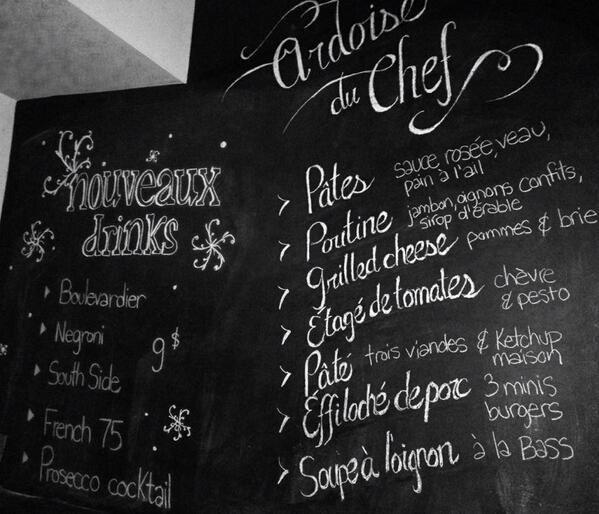 Ardoise
du Chef
nouveaux
drinks
Boulevardier
Negroni
South Side
9$
French 75
Prosecco cocktail
Pâtes sauce rosée, veau,
pain à l'ail
Poutine jambon, oignons confits,
sirop d'érable
Grilled cheese pommes & brie
Étagé de tomates chèvre
& pesto
Pâté trois viandes & Ketchup
maison
Effiloché de porc 3 minis
burgers
Soupe à l'oignon à la Bass